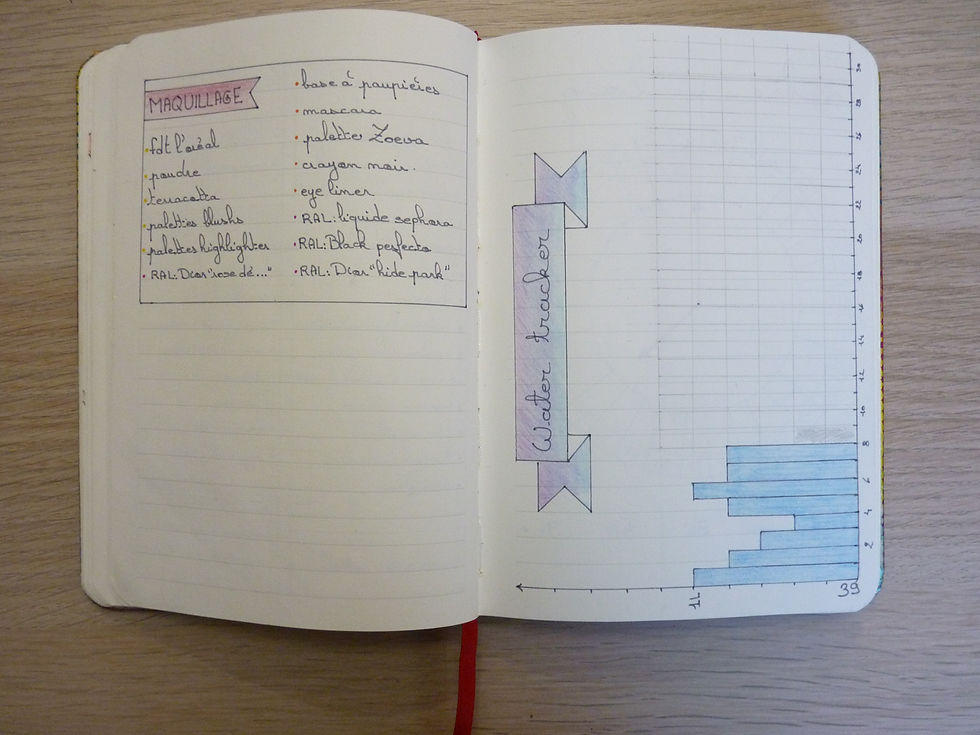 MAQUILLAGE
• fdt l'oréal
• poudre
• terracotta
• palettes blushs
• palettes highlighter
• RAL: Dior "rose dé..."
• base à paupières
• mascara
• palette Zoeva
• crayon noir.
• eye liner
• RAL: liquide sephora
• RAL: Black perfecto
• RAL: Dior "hide park"
Water tracker
1L
2
4
6
8
10
12
14
16
18
20
22
24
26
28
30
39